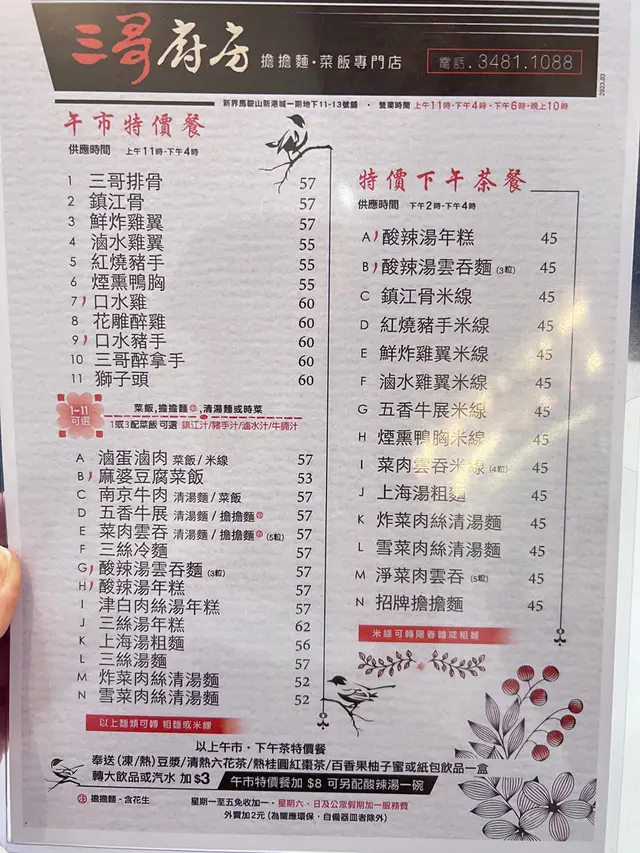 三哥廚房 擔擔麵·菜飯專門店 電話.3481.1088
2023.03
新界馬鞍山新港城一期地下11-13號舖 · 營業時間 上午11時-下午4時·下午6時-晚上10時
午市特價餐
供應時間 上午11時-下午4時
1 三哥排骨 57
2 鎮江骨 57
3 鮮炸雞翼 57
4 滷水雞翼 55
5 紅燒豬手 55
6 煙熏鴨胸 55
7 口水雞 60
8 花雕醉雞 60
9 口水豬手 60
10 三哥醉拿手 60
11 獅子頭 60
1-11 可選
菜飯,擔擔麵,清湯麵或時菜
1或3配菜飯 可選 鎮江汁/豬手汁/滷水汁/牛腩汁
A 滷蛋滷肉 菜飯/米線 57
B 麻婆豆腐菜飯 53
C 南京牛肉 清湯麵/菜飯 57
D 五香牛展 清湯麵/擔擔麵 57
E 菜肉雲吞 清湯麵/擔擔麵 (5粒) 57
F 三絲冷麵 57
G 酸辣湯雲吞麵 (3粒) 57
H 酸辣湯年糕 57
I 津白肉絲湯年糕 57
J 三絲湯年糕 62
K 上海湯粗麵 56
L 三絲湯麵 57
M 炸菜肉絲清湯麵 52
N 雪菜肉絲清湯麵 52
以上麵類可轉 粗麵或米線
特價下午茶餐
供應時間 下午2時-下午4時
A 酸辣湯年糕 45
B 酸辣湯雲吞麵 (3粒) 45
C 鎮江骨米線 45
D 紅燒豬手米線 45
E 鮮炸雞翼米線 45
F 滷水雞翼米線 45
G 五香牛展米線 45
H 煙熏鴨胸米線 45
I 菜肉雲吞米線 (4粒) 45
J 上海湯粗麵 45
K 炸菜肉絲清湯麵 45
L 雪菜肉絲清湯麵 45
M 淨菜肉雲吞 (5粒) 45
N 招牌擔擔麵 45
米線可轉陽春麵或粗麵
以上午市·下午茶特價餐
奉送(凍/熱)豆漿/清熱六花茶/熱桂圓紅棗茶/百香果柚子蜜或紙包飲品一盒
轉大飲品或汽水 加$3 午市特價餐加 $8 可另配酸辣湯一碗
擔擔麵-含花生 星期一至五免收加一·星期六、日及公眾假期加一服務費
外賣加2元 (為響應環保,自備器皿者除外)